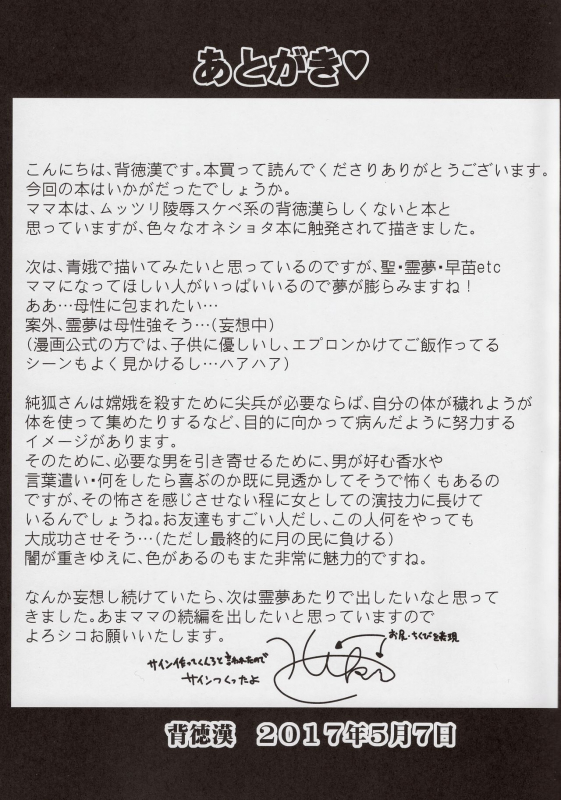 あとがき♡
こんにちは、背徳漢です。本買って読んでくださりありがとうございます。
今回の本はいかがだったでしょうか。
ママ本は、ムッツリ陵辱スケベ系の背徳漢らしくないと本と
思っていますが、色々なオネショタ本に触発されて描きました。
次は、青娥で描いてみたいと思っているのですが、聖・霊夢・早苗etc
ママになってほしい人がいっぱいいるので夢が膨らみますね！
ああ…母性に包まれたい…
案外、霊夢は母性強そう…(妄想中)
(漫画公式の方では、子供に優しいし、エプロンかけてご飯作ってる
シーンもよく見かけるし…ハアハア)
純狐さんは嫦娥を殺すために尖兵が必要ならば、自分の体が穢れようが
体を使って集めたりするなど、目的に向かって病んだように努力する
イメージがあります。
そのために、必要な男を引き寄せるために、男が好む香水や
言葉遣い・何をしたら喜ぶのか既に見透かしてそうで怖くもあるの
ですが、その怖さを感じさせない程に女としての演技力に長けて
いるんでしょうね。お友達もすごい人だし、この人何をやっても
大成功させそう…(ただし最終的に月の民に負ける)
闇が重きゆえに、色があるのもまた非常に魅力的ですね。
なんか妄想し続けていたら、次は霊夢あたりで出したいなと思って
きました。あまママの続編を出したいと思っていますので
よろシコお願いいたします。
お尻・ちくびを表現
サイン作ってくんろと言われたので
サインつくったよ
背徳漢　２０１７年５月７日